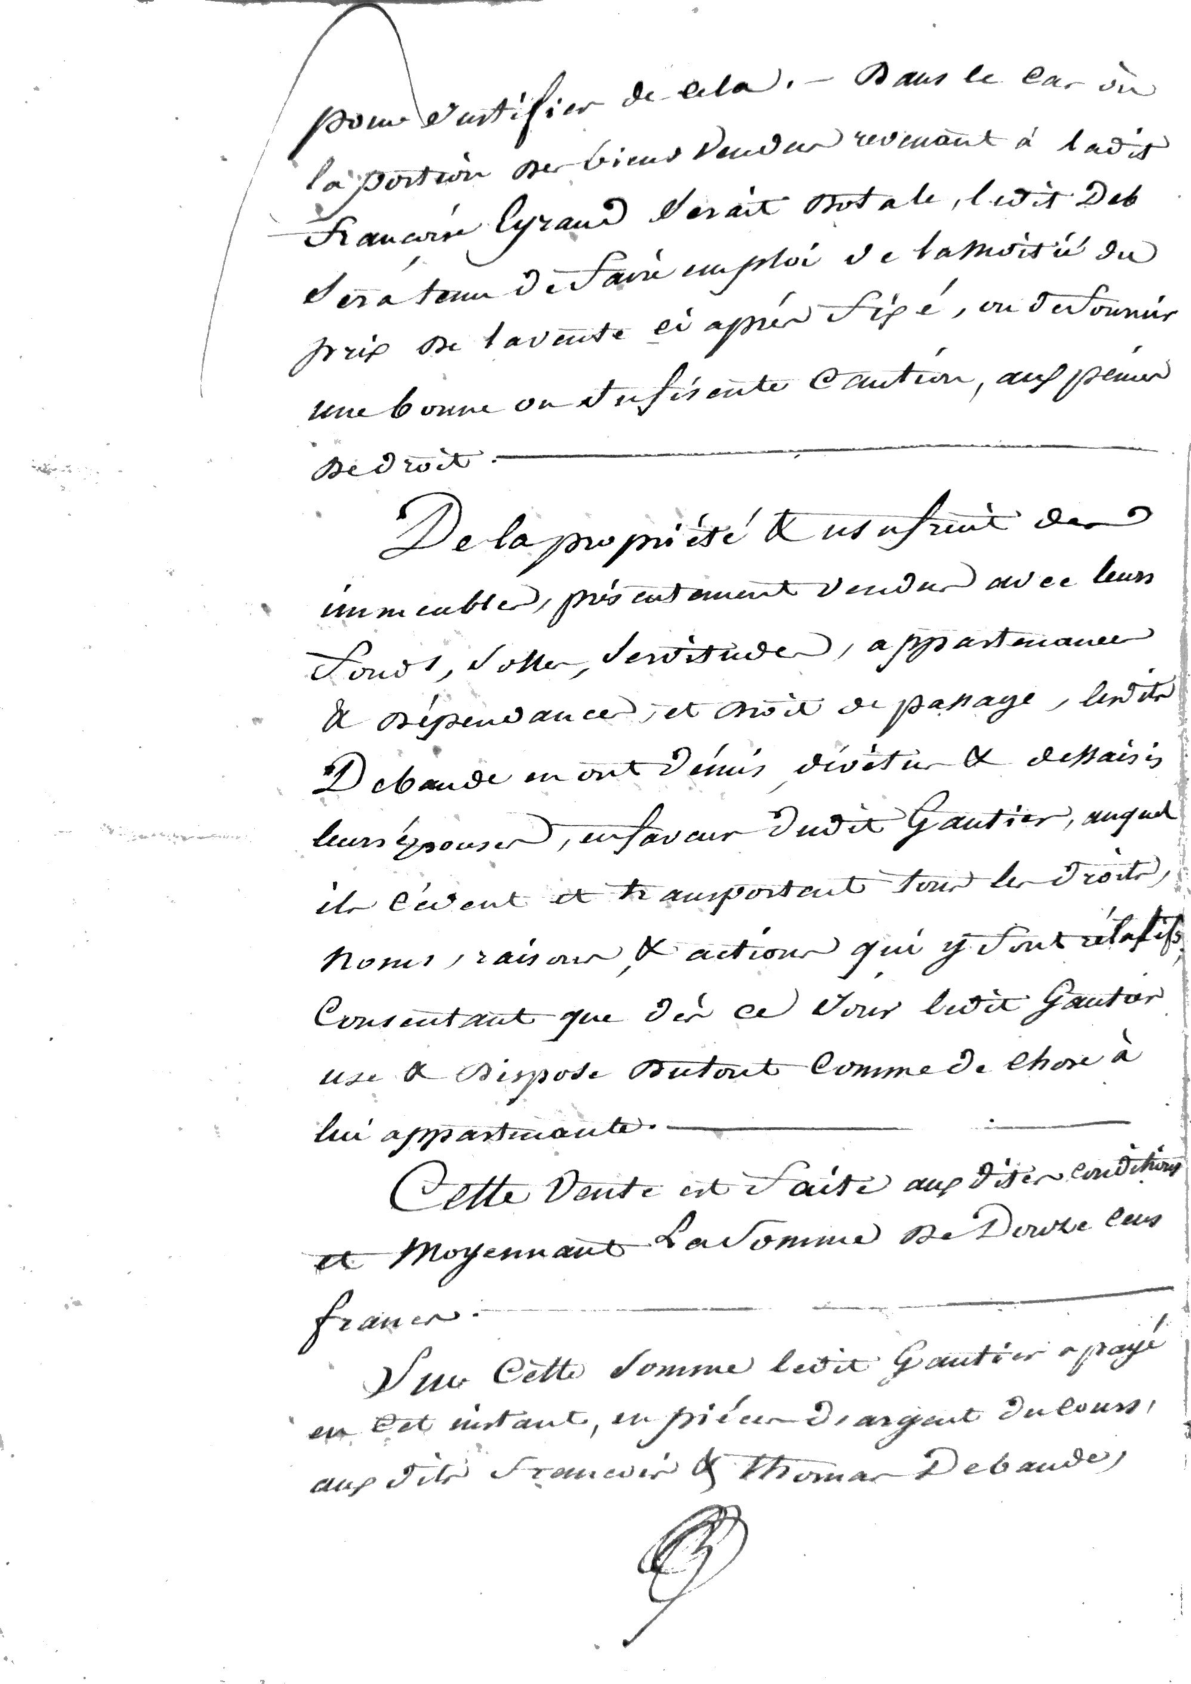 pour Justifier de cela. – Dans le cas où
la portion des biens vendus revenant à ladit
françoise Eyraud serait dotale, ledit Deb
sera tenu de faire emploi de la moitié du
prix de la vente ci après fixé, ou de fournir
une bonne ou sufisente Caution, aux peines
de droit.
De la propriété & usufruit des
immeubles, présentement vendus avec leurs
fonds, Solles, Servitudes, appartenances
& dépendances, et droit de passage, lesdits
Debaude en ont démis, dévêtir & dessaisis
leurs épouses, en faveur dudit Gautier, auquel
ils cèdent et transportent tous les droits,
noms, raisons, & actions qui y sont rélatifs,
Consentant que dès ce Jour ledit Gautier
use & dispose du tout Comme de chose à
lui appartenante.
Cette Vente est faite aux dites conditions
et Moyennant La Somme de Douze Cens
francs.
Sur Cette Somme ledit Gautier a payé
en Cet instant, en pièces d'argent du Cours,
aux dits françois & thomas Debaude,